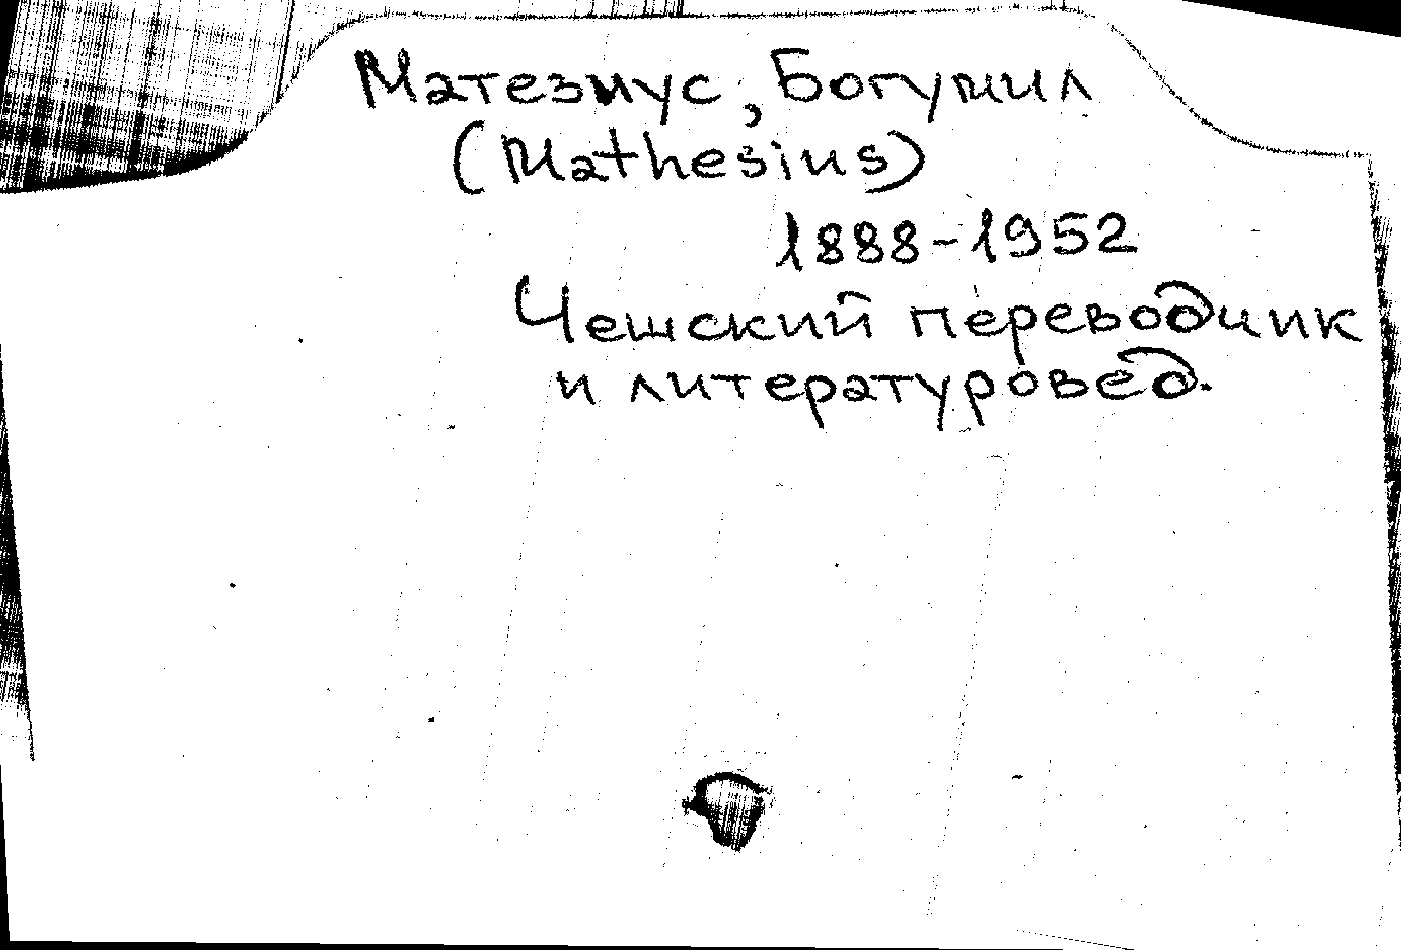 Матезиус, Богумил
(Mathesius)
1888-1952
Чешский переводчик
и литературовед.